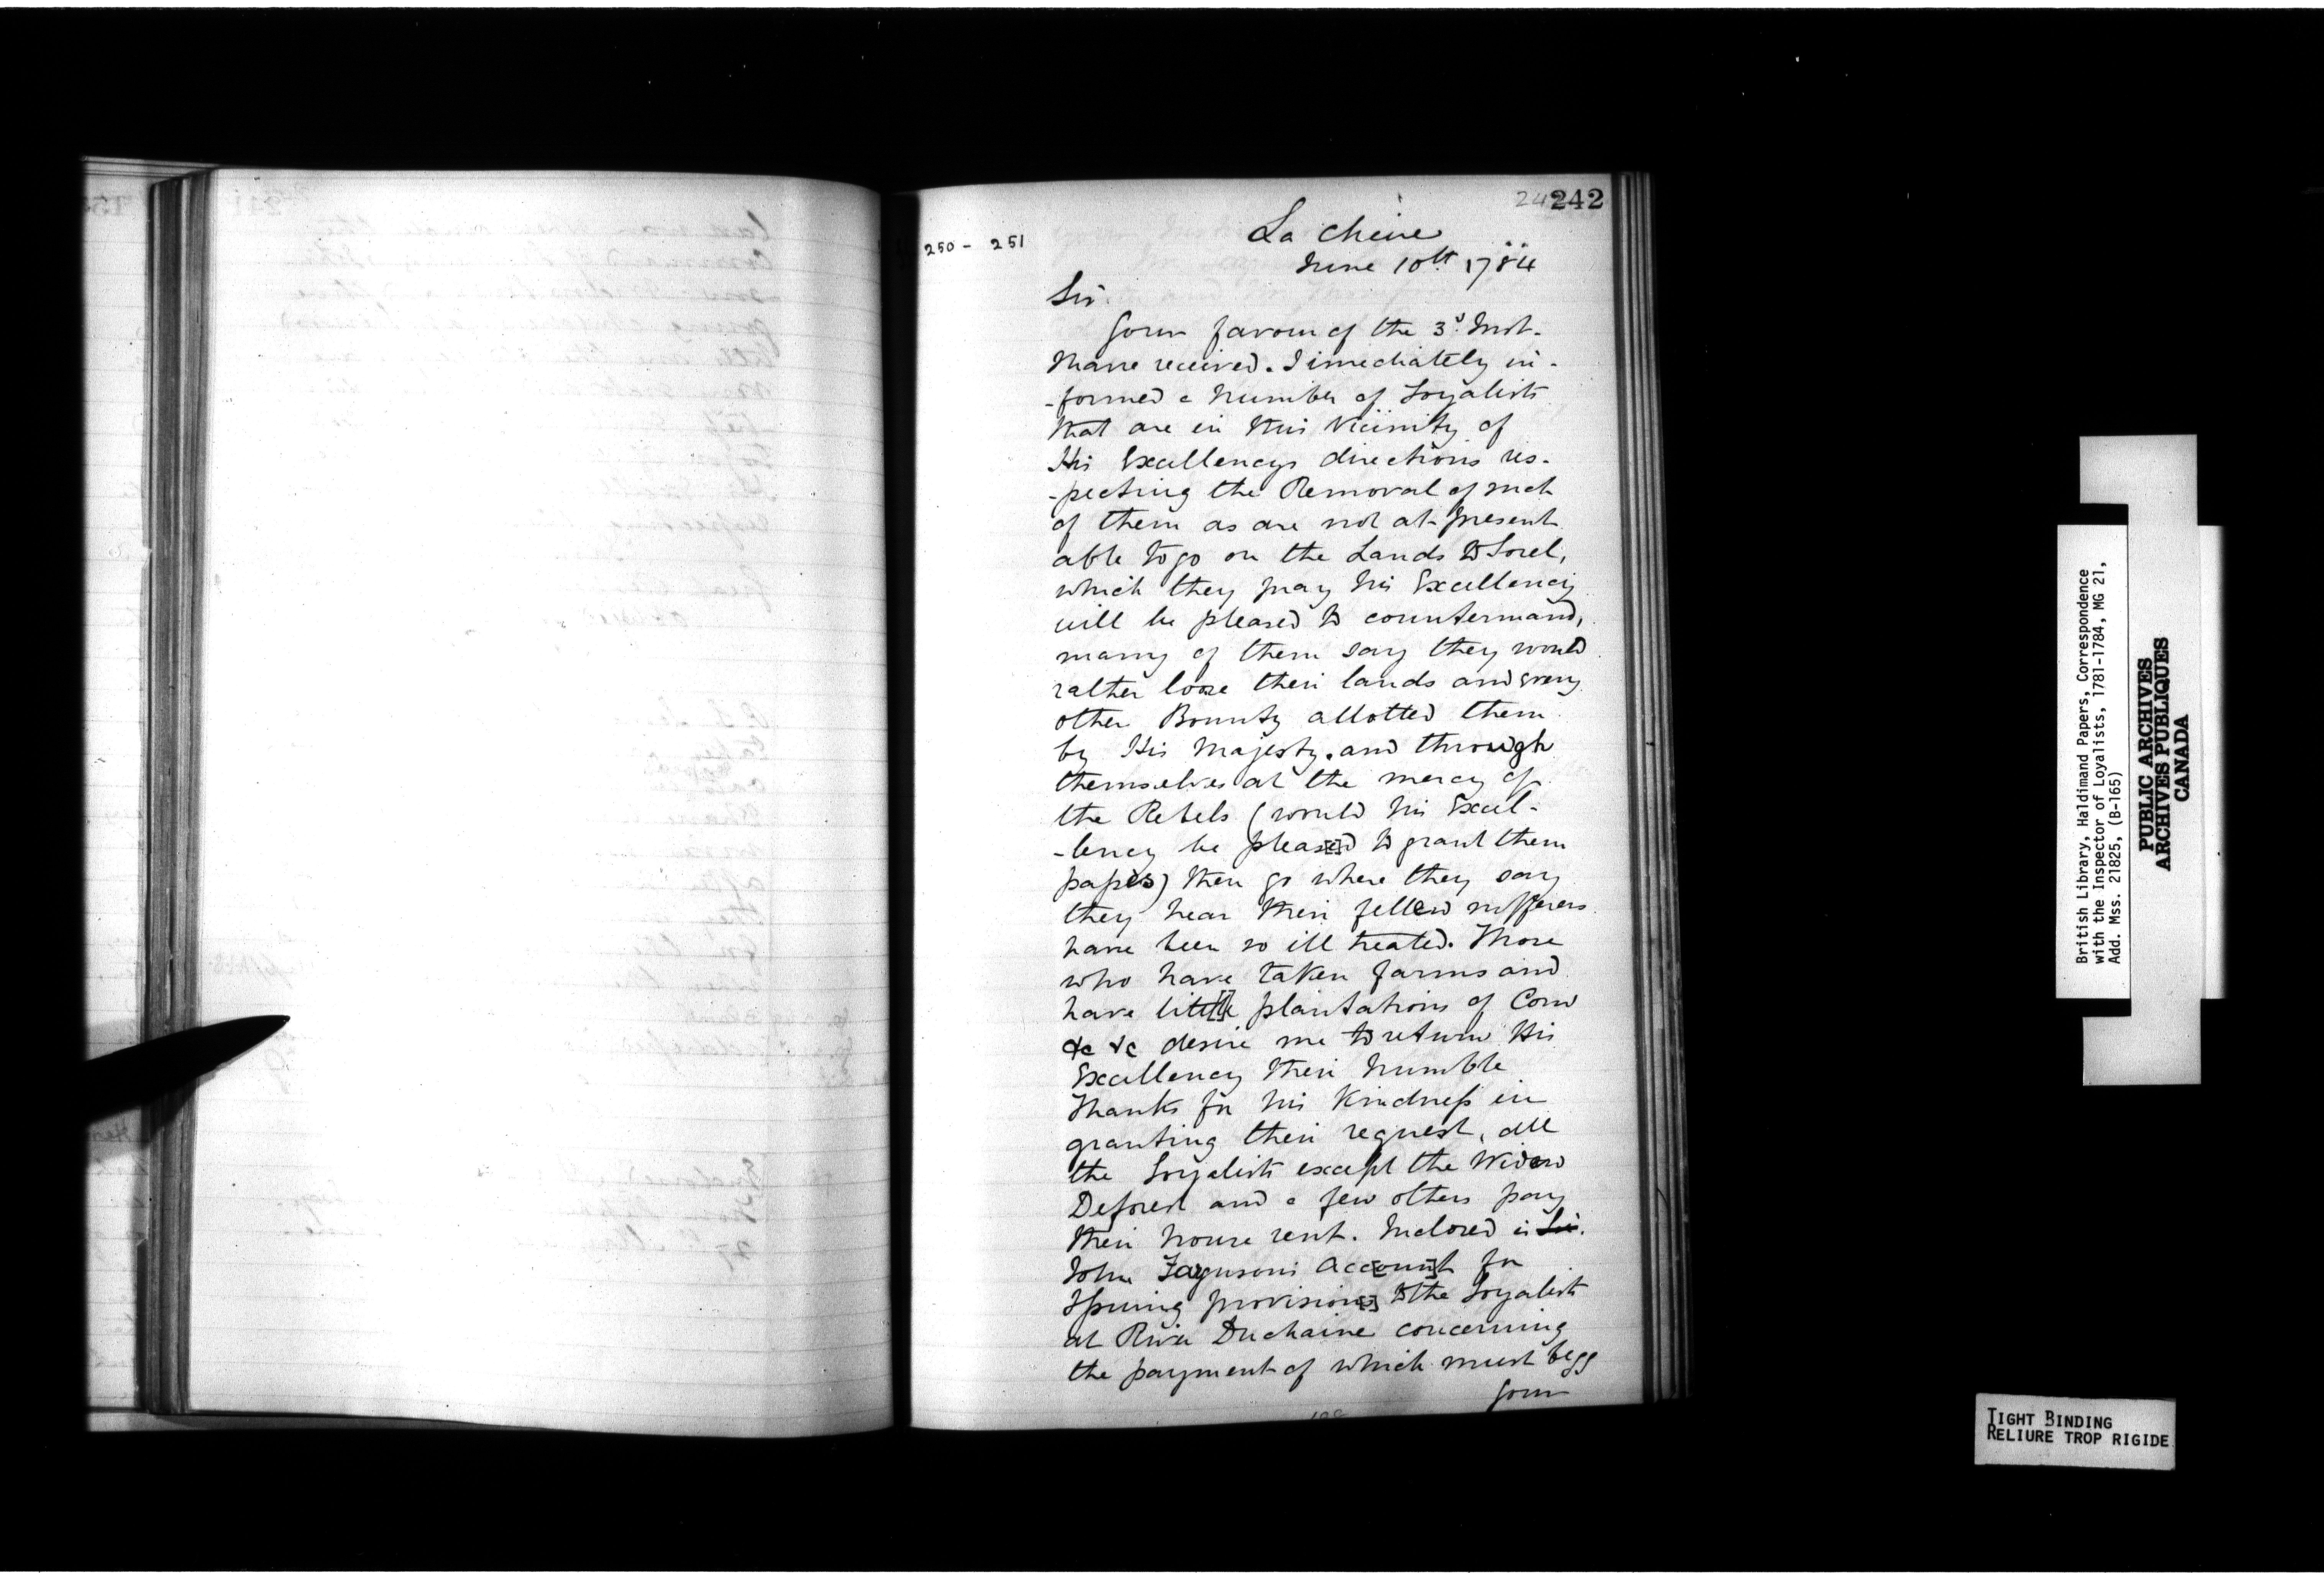 242
250 - 251
La Chine
June 10th 1784
Sir
Your favour of the 3d Inst.
I have received. I imediately in-
-formed a Number of Loyalists
that are in this Vicinity of
His Excellencys directions res-
-pecting the Removal of such
of them as are not at present
able to go on the Lands to Sorel,
which they pray his Excellency
will be pleased to countermand,
many of them say they would
rather loose their lands and every
other Bounty allotted them
by His Majesty, and through
themselves at the mercy of
the Rebels (would his Excel-
-lency be pleas[e]d to grant them
passes) then go where they say
they hear their fellow sufferers
have been so ill treated. Those
who have taken farms and
have little plantations of Corn
&c &c desire me to return His
Excellency their humble
Thanks for his Kindness in
granting their request, all
the Loyalists except the Widow
Deforest and a few others pay
their house rent. Inclosed is Sir.
John Fargusons Acc[oun]t for
Issuing provision[s] to the Loyalists
at River Duchaine concerning
the payment of which must begg
Your
British Library, Haldimand Papers, Correspondence
with the Inspector of Loyalists, 1781-1784, MG 21,
Add. Mss. 21825, (B-165)
PUBLIC ARCHIVES
ARCHIVES PUBLIQUES
CANADA
TIGHT BINDING
RELIURE TROP RIGIDE